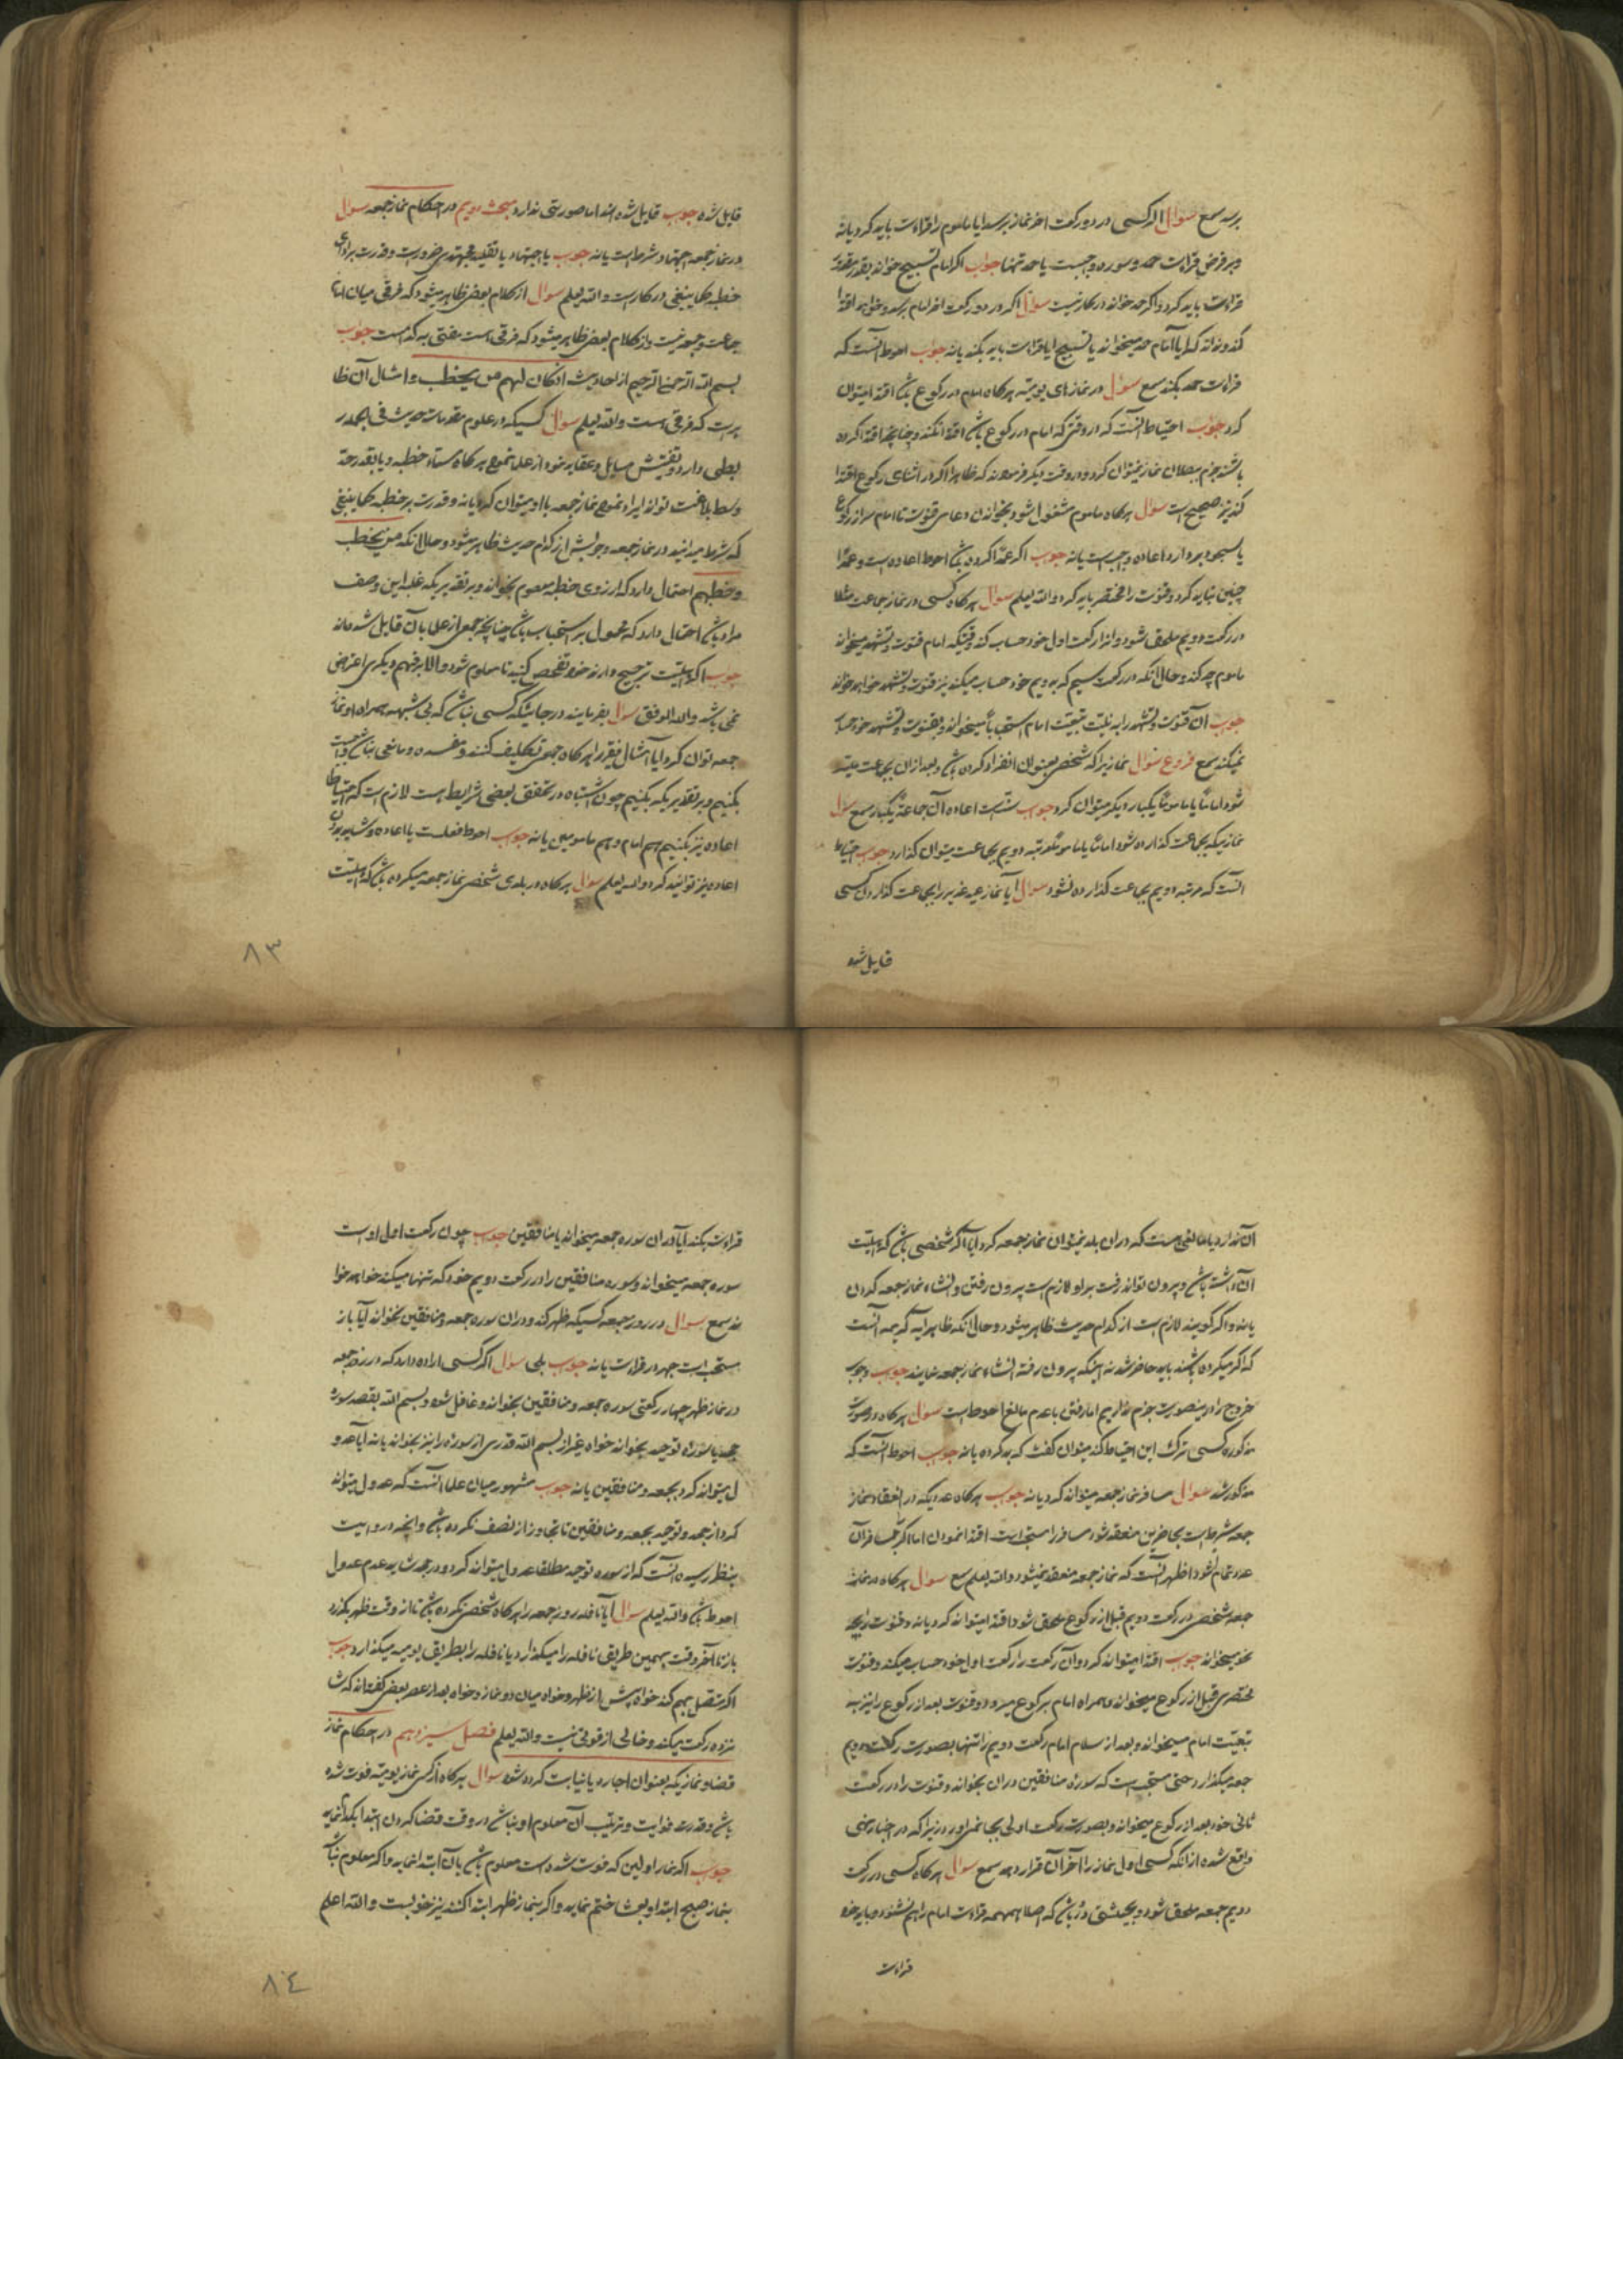 برسد سمع سوال اگر کسی در دو رکعت اخر نماز برسد ایا ماموم را قراءت باید کرد یا نه
و بر فرض قراءت حمد و سوره واجبست یا حمد تنها جواب اکر امام تسبیح خواند بقدر مقدور
قراءت باید کرد و اکر حمد خواند در کار نیست سوال اکر در دو رکعت اخر امام برسد و خواهد اقتدا
کند و نداند که ایا امام حمد میخواند یا تسبیح ایا قراءت باید بکند یا نه جواب احوط آنست که
قراءت حمد بکند سمع سوال در نمازهای یومیه هرکاه امام در رکوع باشد اقتدا میتوان
کرد جواب احتیاط آنست که در وقتی که امام در رکوع باشد اقتدا نکند و چنانچه اقتدا کرده
باشند جزم ببطلان نماز نمیتوان کرد و در وقت دیکر فرمودند که ظاهرا اکر در اثنای رکوع اقتدا
کند نیز صحیح است سوال هرکاه ماموم مشغول شود بخواندن دعای قنوت تا امام سر از رکوع
یا سجود بردارد اعاده واجبست یا نه جواب اکر عمدا کرده باشد احوط اعاده است و عمدا
چنین نباید کرد و قنوت را مختصر باید کرد والله یعلم سوال هرکاه کسی در نماز جماعت مثلا
در رکعت دویم ملحق شود و انرا رکعت اول خود حساب کند وقتیکه امام قنوت و تشهد میخواند
ماموم چه کند و حال آنکه در رکعت سیم که به دویم خود حساب میکند نیز قنوت و تشهد خواهد خواند
جواب آن قنوت و تشهد را به نیت تبعیت امام استحبابا میخواند و بقنوت و تشهد خود حساب
نمیکند سمع فروع سوال نمازیرا که شخصی بعنوان انفراد کرده باشد و بعد از ان بجماعت میتـ
شود اماما یا ماموما یکبار دیکر میتوان کرد جواب سنت است اعاده آن جماعة یکبار سمع سوال
نمازیکه بجماعت کذارده شود اماما یا ماموما مرتبه دویم بجماعت میتوان کذارد جواب احتیاط
آنست که مرتبه دویم بجماعت کذارده نشود سوال آیا نماز عید غدیر را بجماعت کذاردن کسی
قایل شده
قایل شده جواب قایل شده اند اما صورتی ندارد مبحث دویم در احکام نماز جمعه سوال
در نماز جمعه اجتهاد شرط است یا نه جواب یا اجتهاد یا تقلید مجتهدی ضرورست و قدرت بر ادای
خطبه کما ینبغی در کار است والله یعلم سوال از کلام بعضی ظاهر میشود که فرقی میان امام
جماعت و جمعه نیست و از کلام بعضی ظاهر میشود که فرقی است مفتی به کدامست جواب
بسم الله الرحمن الرحیم از احادیث ان کان لهم من یخطب و امثال آن ظا
هر است که فرقی هست والله یعلم سوال کسیکه در علوم مقدمات حدیث فی الجمله ر
بطی دارد و تفتیش مسایل و عقاید خود از علما نموده هرکاه سه خطبه و یا بقدر حد
وسط بلاغت تواند ایراد نمود نماز جمعه با او میتوان کرد یا نه و قدرت بر خطبه کما ینبغی
که شرط میدانید در نماز جمعه وجوبش از کدام حدیث ظاهر میشود و حال آنکه من یخطب
و خطبهم احتمال دارد که از روی خطبه معصوم بخواند و بر تقدیریکه غلبه این وصف
مراد باشد احتمال دارد که محمول بر استحباب باشد چنانچه جمعی از علما بآن قایل شده اند
جواب اکر اهلیت ترجیح دارند خود تفحص کنید تا معلوم شود والا بر فهم دیکری اعتراض
نمی باشد والله الموفق سوال بفرمایند در جائیکه کسی نباشد که بی شبهه همراه او نماز
جمعه توان کرد ایا امثال فقیر را هرکاه جمعی تکلیف کنند و مفسده و مانعی نباشد واجبست
بکنیم و بر تقدیریکه بکنیم چون اشتباه در تحقق بعضی شرایط هست لازم است که احتیاطا
اعاده نیز بکنیم هم امام و هم مامومین یا نه جواب احوط فعلست با اعاده و شاید بدون
اعاده نیز توانید کرد والله یعلم سوال هرکاه در بلدی شخصی نماز جمعه میکرده باشد که اهلیت
۸۳
آن ندارد یا مانعی هست که در ان بلد نمیتوان نماز جمعه کرد ایا اکر شخصی باشد که اهلیت
آن داشته باشد و بیرون تواند رفت بر او لازم است بیرون رفتن و انشاء نماز جمعه کردن
یا نه و اکر کویند لازم است از کدام حدیث ظاهر میشود و حال آنکه ظاهر آیه کریمه آنست
که اکر میکرده باشند باید حاضر شد نه اینکه بیرون رفته انشاء نماز جمعه نمایند جواب وجوب
خروج را درینصورت جزم نداریم اما رفتن با عدم مانع احوط است سوال هرکاه در صورت
مذکوره کسی ترک این احتیاط کند میتوان گفت که بد کرده یا نه جواب احوط آنست که
مذکور شد سوال مسافر نماز جمعه میتواند کرد یا نه جواب هرکاه عددیکه در انعقاد نماز
جمعه شرط است بحاضرین منعقد شود مسافر را مستحب است اقتدا نمودن اما اکر بمسافر آن
عدد تمام شود اظهر آنست که نماز جمعه منعقد نمیشود والله یعلم سمع سوال هرکاه در نماز
جمعه شخصی در رکعت دویم قبل از رکوع ملحق شود اقتدا میتواند کرد یا نه و قنوت را بچه
نحو میخواند جواب اقتدا میتواند کرد و آن رکعت را رکعت اول خود حساب میکند و قنوت
مختصری قبل از رکوع میخواند و همراه امام برکوع میرود و قنوت بعد از رکوع را نیز به
تبعیت امام میخواند و بعد از سلام امام رکعت دویم را تنها بصورت رکعت دویم
جمعه میکذارد حتی مستحب است که سوره منافقین در ان بخواند و قنوت را در رکعت
ثانی خود بعد از رکوع میخواند و بصورت رکعت اولی بجا نمی اورد زیرا که در اخبار نهی
واقع شده از آنکه کسی اول نماز را آخر آن قرار دهد سمع سوال هرکاه کسی در رکعت
دویم جمعه ملحق شود و بحیثیتی دور باشد که اصلا همهمه قراءت امام را هم نشنود و باید خود
قراءت
قراءت بکند آیا در ان سوره جمعه میخواند یا منافقین جواب چون رکعت اول اوست
سوره جمعه میخواند و سوره منافقین را در رکعت دویم خود که تنها میکند خواهد خوا
ند سمع سوال در روز جمعه کسیکه ظهر کند و در ان سوره جمعه و منافقین نخواند آیا باز
مستحب است جهر در قراءت یا نه جواب بلی سوال اکر کسی اراده دارد که در روز جمعه
در نماز ظهر چهار رکعتی سوره جمعه و منافقین بخواند و غافل شود و بسم الله بقصد سوره
جحد یا سوره توحید بخواند خواه غیر از بسم الله قدری از سوره را نیز بخواند یا نه آیا عدو
ل میتواند کرد بجمعه و منافقین یا نه جواب مشهور میان علما آنست که عدول میتواند
کرد از جحد و توحید بجمعه و منافقین تا تجاوز از نصف نکرده باشد و آنچه در روایت
بنظر رسیده آنست که از سوره توحید مطلقا عدول میتواند کرد و در جحد شاید عدم عدول
احوط باشد والله یعلم سوال آیا نافله روز جمعه را هرکاه شخصی نکرده باشد تا از وقت ظهر بکذرد
باز تا آخر وقت بهمین طریق نافله را میکذارد یا نافله را بطریق یومیه میکذارد جواب
اکر متصل بهم کند خواه پیش از ظهر و خواه میان دو نماز و خواه بعد از عصر بعضی گفته اند که شا
نزده رکعت میکند و خالی از قوتی نیست والله یعلم فصل سیزدهم در احکام نماز
قضا و نمازیکه بعنوان اجاره یا نیابت کرده شود سوال هرکاه از کسی نماز یومیه فوت شده
باشد و قدر فوایت و ترتیب آن معلوم او نباشد در وقت قضا کردن ابتدا بکدام نماید
جواب اکر نماز اولین که فوت شده است معلوم باشد بآن ابتدا نماید و اکر معلوم نباشد
بنماز صبح ابتدا و بعشا ختم نماید و اکر بنماز ظهر ابتدا کند نیز خوبست والله اعلم
۸٤